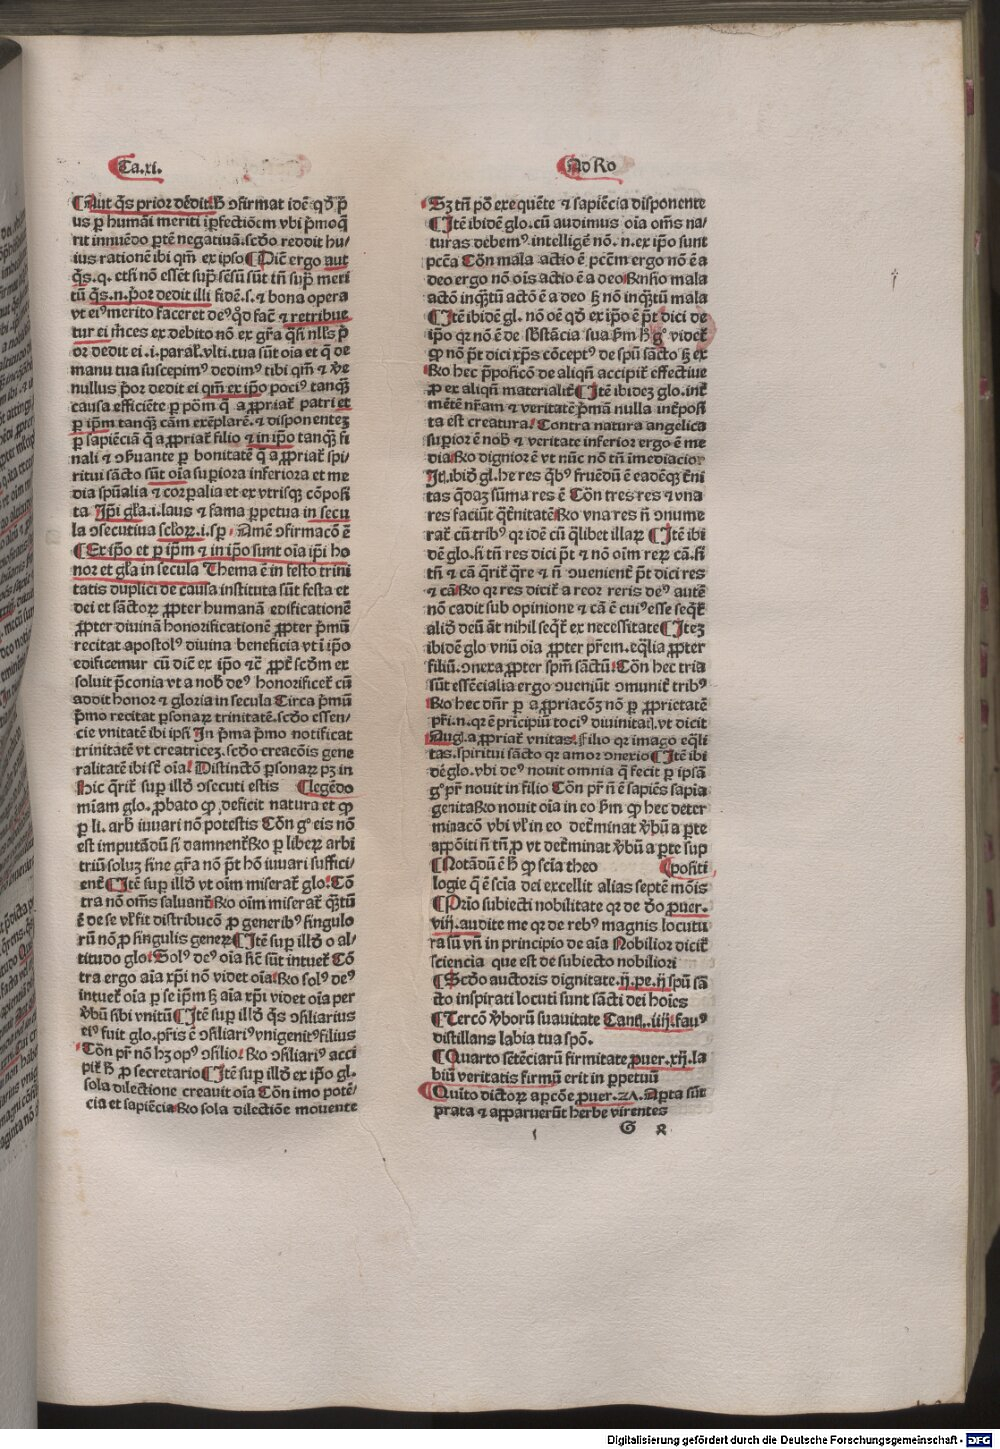 Ca.xi.
Ad Ro
¶Aut q̄s prior dēdit. h̄ ꝯfirmat idē qd̓ p̄
us ꝑ humāi meriti īꝑfectiōem vbi p̄mo q̄
rit innuēdo ꝑtē negatiuā. scd̓o reddit hu/
ius rationē ibi qm̄ ex ipso ¶Diē ergo aut
q̄s. q. etsi nō essēt suꝑ sēsū sūt tn̄ suꝑ meri
tū q̄s. n. p̄or dedit illi fidē. s. ⁊ bona opera
vt ei⁹ merito faceret de⁹ qd̓ faꝯ̄ ⁊ retribue
tur ei m̄ces ex debito nō ex gr̄a q̄si nll̓s p̄
or dedit ei .i. paral̓. vlti. tua sūt oīa et q̄ de
manu tua suscepim⁹ dedim⁹ tibi qm̄ ⁊ v̄e
nullus p̄or dedit ei qm̄ ex ip̄o poci⁹ tanqȝ
causa efficiēte ꝑ pōm q̄ aꝓpriat̄ patri et
ꝑ ip̄m tanqȝ cām exēplarē. ⁊ disponentez
ꝑ sapiēciā q̄ aꝓpriat̄ filio ⁊ in ip̄o tanqȝ fi
nali ⁊ ꝯb̓uante ꝑ bonitatē q̄ aꝓpriat̄ spi/
ritui sācto sūt oīa suꝑiora inferiora et me
dia spūalia ⁊ corꝑalia et ex vtrisqȝ cōposi
ta Ip̄i gl̓a .i. laus ⁊ fama ꝑpetua in secu
la ꝯsecutiua scl̓oꝝ .i. sꝑ. Amē ꝯfirmacō ē
¶Ex ip̄o et ꝑ ip̄m ⁊ in ip̄o sunt oīa ip̄i ho
nor et gl̓a in secula Thema ē in festo trini
tatis duplici de causa instituta sūt festa et
dei et sāctoꝝ ꝓpter humanā edificationē
ꝓpter diuinā honorificationē ꝓpter p̄mū
recitat apostol⁹ diuina beneficia vt ī ip̄o
edificemur cū diē ex ip̄o ⁊c̄ ꝓpt̄ scd̓m ex
soluit p̄conia vt a nob̓ de⁹ honorificet̄ cū
addit honor ⁊ gloria in secula Circa p̄mū
p̄mo recitat ꝑsonaꝝ trinitatē. scd̓o essen/
cie vnitatē ibi ipsi In p̄ma p̄mo notificat
trinitatē vt creatricez. scd̓o creacōis gene
ralitatē ibi st̄ oīa Distinctō ꝑsonaꝝ pȝ in
hic q̄rit̄ suꝑ illd̓ ꝯsecuti estis ¶legēdo
mīam glo. ꝓbato ꝙ deficit natura et ꝙ
ꝑ li. arb̓ iuuari nō potestis Cōn gͦ eis nō
est imputādū si damnent̄ Ro ꝑ liberꝝ arbi
triū soluȝ sine gr̄a nō p̄t hō iuuari suffici-
ent̄ ¶Itē suꝑ illd̓ vt oīm miserat̄ glo. Cō
tra nō om̄s saluant̄ Ro oīm miserat̄ q̄ȝtū
ē de se vl̓ sit distribucō ꝓ generib⁹ singulo
rū nō ꝓ singulis generꝝ ¶Itē suꝑ illd̓ o al/
titudo glo. Sol⁹ de⁹ oīa sic̄ sūt intuet̄ Cō
tra ergo aīa xp̄i nō videt oīa Ro sol⁹ de⁹
intuet̄ oīa ꝑ se ip̄m sȝ aīa xp̄i videt oīa per
v̄bū sibi vnitū ¶Itē suꝑ illd̓ q̄s ꝯsiliarius
ei⁹ fuit glo. pr̄is ē ꝯsiliari⁹ vnigenit⁹ filius
Cōn pr̄ nō hȝ op⁹ ꝯsilio. Ro ꝯsiliari⁹ acci
pit̄ h̄ ꝓ secretario ¶Itē suꝑ illd̓ ex ip̄o gl.
sola dilectione creauit oīa Cōn imo potē/
cia et sapiēcia Ro sola dilectiōe mouente
Sȝ tn̄ pō exequēte ⁊ sapiēcia disponente
¶Itē ibidē glo. cū audimus oīa om̄s na/
turas debem⁹ intelligē nō. n. ex ip̄o sunt
pctā Cōn mala actio ē pctm̄ ergo nō ē a
deo ergo nō oīs actio ē a deo Rnsio mala
actō inqȝtū actō ē a deo sȝ nō inqȝtū mala
¶Itē ibidē gl. nō oē qd̓ ex ip̄o ē p̄t dici de
ip̄o qr nō ē de sb̓stācia sua p̄m h̄ gͦ videt̄
ꝙ nō p̄t dici xp̄s cōcept⁹ de spū sācto sȝ ex
Ro hec p̄posicō de aliqn̄ accipit̄ effectiue
ꝓ ex aliqn̄ materialit̄ ¶Itē ibidez glo. int̄
mētē nr̄am ⁊ veritatē p̄mā nulla int̄posi
ta est creatura. Contra natura angelica
suꝑior ē nob̓ ⁊ veritate inferior ergo ē me
dia Ro dignior ē vt nūc nō tn̄ īmediacior
It̄. ibid̓ gl. he res q̄b⁹ fruēdū ē eadēqȝ t̄ni
tas q̄daȝ sūma res ē Cōn tres res ⁊ vna
res faciūt q̄t̄nitatē Ro vna res n̄ ꝯnume
rat̄ cū trib⁹ qr idē cū q̄libet illaꝝ ¶Itē ibi
dē glo. si tn̄ res dici p̄t ⁊ nō oīm reꝝ cā. si
tn̄ ⁊ cā q̄rit̄ q̄re ⁊ n̄ ꝯuenient̄ p̄t dici res
⁊ cā Ro qr res dicit̄ a reor reris de⁹ autē
nō cadit sub opinione ⁊ cā ē cui⁹ esse seqt̄
aliō deū āt nihil seqt̄ ex necessitate ¶Itez
ibidē glo vnū oīa ꝓpter pr̄em. eq̄lia ꝓpter
filiū. ꝯnexa ꝓpter spm̄ sāctū. Cōn hec tria
sūt essēcialia ergo ꝯueniūt ꝯmunit̄ trib⁹
Ro hec dn̄r ꝑ aꝓpriacōȝ nō ꝑ ꝓprietatē
pr̄i. n. qr ē p̄ncipiū toci⁹ diuinitatꝭ. vt dicit
Augꝭ. aꝓpriat̄ vnitas. filio qr imago eq̄li
tas. spiritui sācto qr amor ꝯnexio ¶Itē ibi
dē glo. vbi de⁹ nouit omnia q̄ fecit ꝑ ipsā
gͦ pr̄ nouit in filio Cōn pr̄ n̄ ē sapiēs sapia
genita Ro nouit oīa in eo p̄m ꝙ hec deter
minacō vbi vl̓ in eo det̄minat v̄bū a ꝑte
appōiti n̄ tn̄ ꝓ vt det̄minat v̄bū a ꝑte sup
¶Notādū ē h̄ ꝙ scīa theo ¶positi
logie q̄ ē scīa dei excellit alias septē mōis
¶Prīo subiecti nobilitate qr de dō ꝓuer.
viij. audite me qr de reb⁹ magnis locutu
ra sū vn̄ in principio de aīa Nobilior dicit̄
sciencia que est de subiecto nobiliori
¶Scd̓o auctoris dignitate. ij. pe. ij spū sā
cto inspirati locuti sunt sācti dei hoīes
¶Tercō v̄borū suauitate Cant̄. iiij. fau⁹
distillans labia tua spō.
¶Quarto sētēciarū firmitate ꝓuer. xij. la
biū veritatis firmū erit in ꝑpetuū
¶Quīto dictoꝝ aꝑcōe ꝓuer. 27. Aꝑta sūt
prata ⁊ apparuerūt herbe virentes
G 8
Digitalisierung gefördert durch die Deutsche Forschungsgemeinschaft - DFG